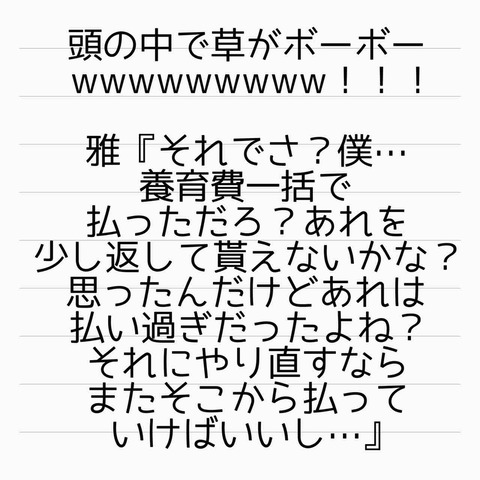 頭の中で草がボーボー
wwwwwwwwww！！！
雅『それでさ？僕…
養育費一括で
払っただろ？あれを
少し返して貰えないかな？
思ったんだけどあれは
払い過ぎだったよね？
それにやり直すなら
またそこから払って
いけばいいし…』